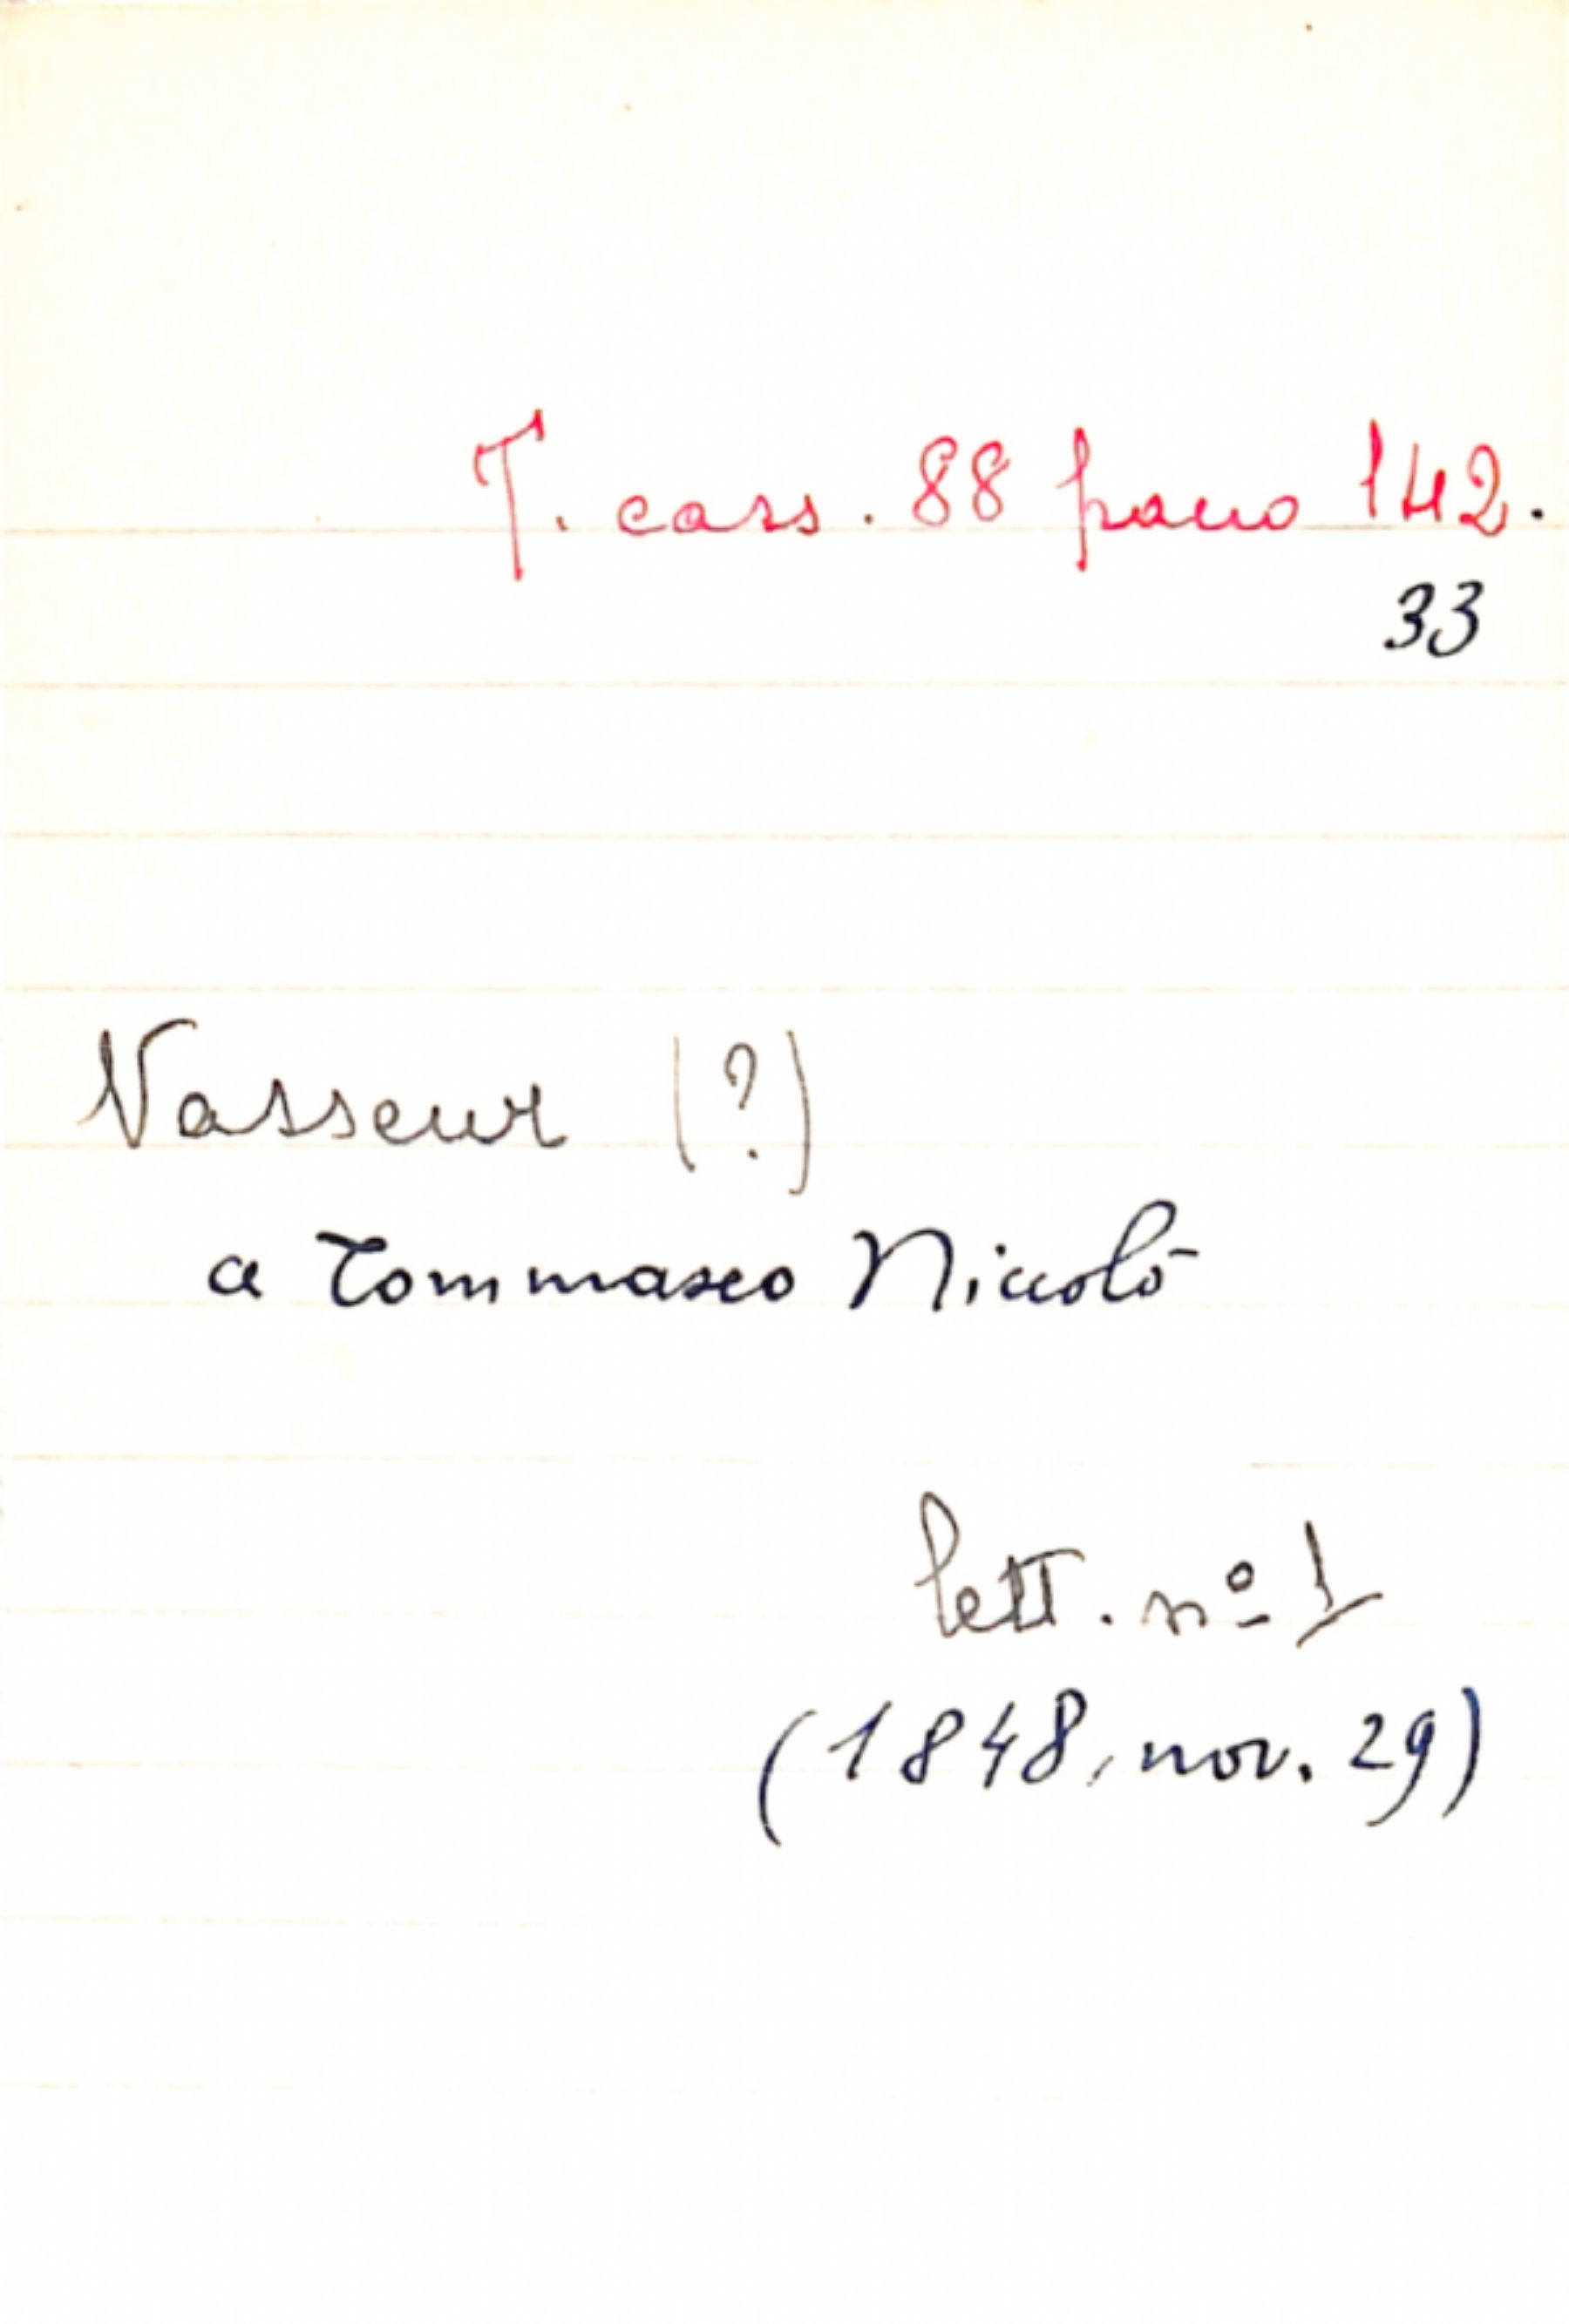 T. cass. 88 pacco 142.
33
Vasseur (?)
a Tommaseo Niccolò
lett. nº 1
(1848, nov. 29)